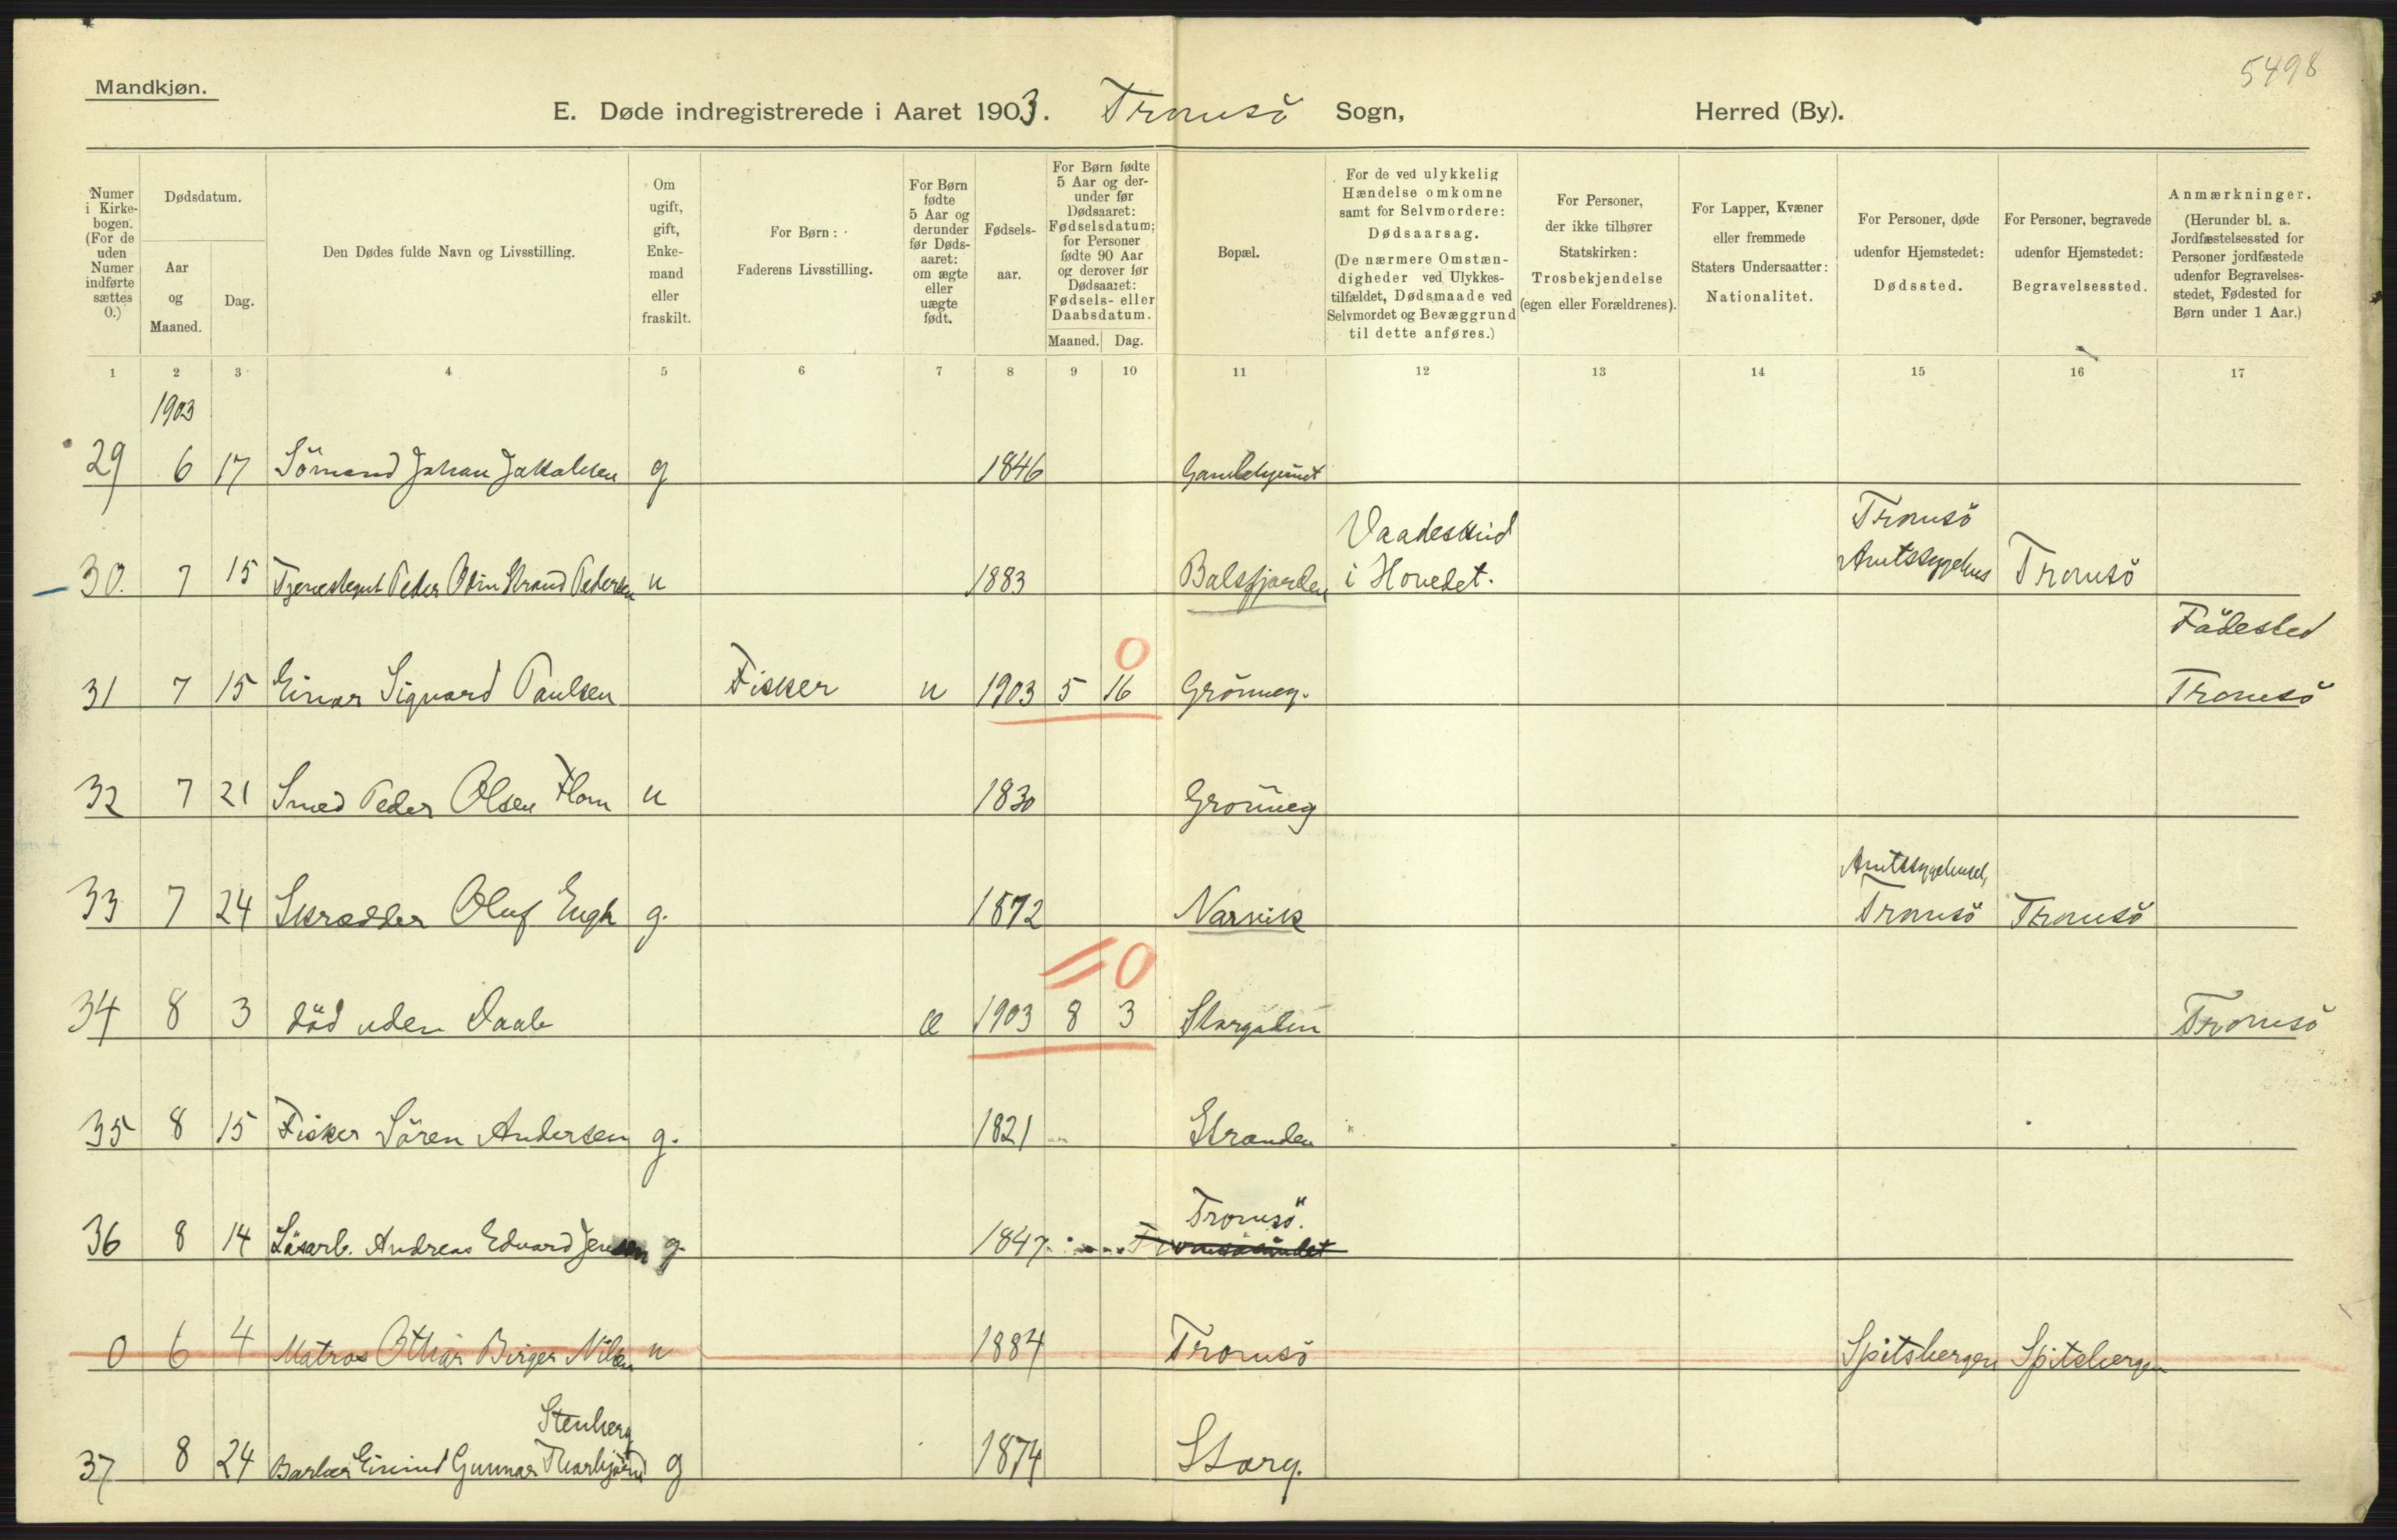 5498
Mandkjøn.
E. Døde indregistrerede i Aaret 1903. Tromsö Sogn, Herred (By).
Numer i Kirkebogen. (For de uden Numer indførte sættes 0.)
Dødsdatum.
Aar og Maaned.
Dag.
Den Dødes fulde Navn og Livsstilling.
Om ugift, gift, Enkemand eller fraskilt.
For Børn: Faderens Livsstilling.
For Børn fødte 5 Aar og derunder før Dødsaaret: om ægte eller uægte født.
Fødselsaar.
For Børn fødte 5 Aar og derunder før Dødsaaret: Fødselsdatum; for Personer fødte 90 Aar og derover før Dødsaaret: Fødsels- eller Daabsdatum.
Maaned. Dag.
Bopæl.
For de ved ulykkelig Hændelse omkomne samt for Selvmordere: Dødsaarsag. (De nærmere Omstændigheder ved Ulykkestilfældet, Dødsmaade ved Selvmordet og Bevæggrund til dette anføres.)
For Personer, der ikke tilhører Statskirken: Trosbekjendelse (egen eller Forældrenes).
For Lapper, Kvæner eller fremmede Staters Undersaatter: Nationalitet.
For Personer, døde udenfor Hjemstedet: Dødssted.
For Personer, begravede udenfor Hjemstedet: Begravelsessted.
Anmærkninger. (Herunder bl. a. Jordfæstelsessted for Personer jordfæstede udenfor Begravelsesstedet, Fødested for Børn under 1 Aar.)
1 2 3 4 5 6 7 8 9 10 11 12 13 14 15 16 17
1903
29 6 17 Sömand Johan Jakobsen g 1846
Vaadeskud Tromsö
30. 7 15 Tjenestegut Peder Odin Strand Pedersen u 1883 Balsfjorden i Hovedet. Amtssygehus Tromsö
Födested
0
31 7 15 Einar Sigvard Paulsen Fisker u 1903 5 16 Grönneg. Tromsö
32 7 21 Smed Peder Olsen Flom u 1830 Grönneg
Amtssygehuset,
33 7 24 Skrædder Oluf Engh g. 1872 Narvik Tromsö Tromsö
0
34 8 3 död uden Daab æ 1903 8 3 Storgaden Tromsö
35 8 15 Fisker Sören Andersen g. 1821 Stranden
Tromsö.
36 8 14 Lösarb. Andreas Edvard Jensen g. 1847 Tromsösundet
0 6 4 Matros Othar Birger Nilsen u 1884 Tromsö Spitsbergen Spitsbergen
Stenberg
37 8 24 Barber Eivind Gunnar Thorbjörnd g 1874 Storg.